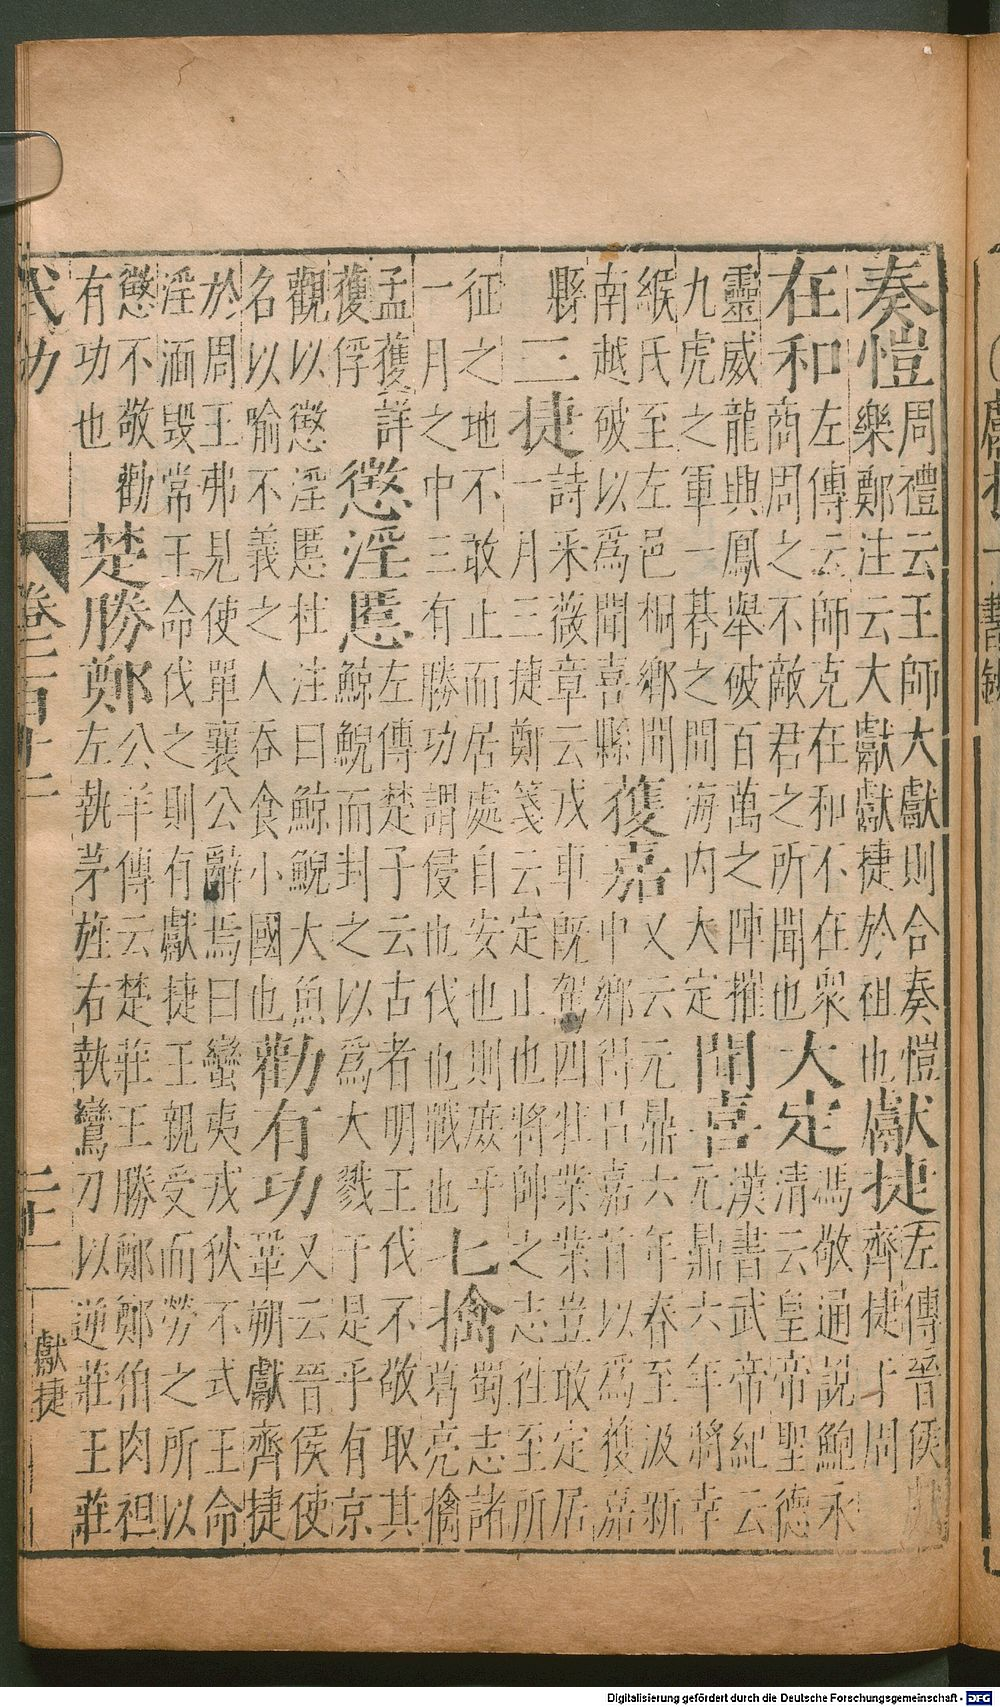 奏愷周禮云王師大獻則合奏愷樂鄭注云大獻獻捷於祖也獻捷左傳晉侯獻齊捷于周
在和左傳云師克在和不在衆商周之不敵君之所聞也大定馮敬通說鮑永清云皇帝聖德
靈威龍興鳳舉破百萬之陣摧九虎之軍一朞之間海內大定聞喜漢書武帝紀云元鼎六年將幸
緱氏至左邑桐鄉聞南越破以爲聞喜縣獲嘉又云元鼎六年春至汲新中鄉得呂嘉首以爲獲嘉
縣三捷詩采薇章云戎車既駕四牡業業豈敢定居一月三捷鄭箋云定止也將帥之志往至所
征之地不敢止而居處自安也則庶乎一月之中三有勝功謂侵也伐也戰也七擒蜀志諸葛亮擒
孟獲詳獲俘懲淫慝左傳楚子云古者明王伐不敬取其鯨鯢而封之以爲大戮于是乎有京
觀以懲淫慝杜注曰鯨鯢大魚名以喻不義之人吞食小國也勸有功又云晉侯使鞏朔獻齊捷
於周王弗見使單襄公辭焉曰蠻夷戎狄不式王命淫湎毀常王命伐之則有獻捷王親受而勞之所以
懲不敬勸有功也楚勝鄭公羊傳云楚莊王勝鄭鄭伯肉袒左執茅旌右執鸞刀以逆莊王莊
武功
獻捷
Digitalisierung gefördert durch die Deutsche Forschungsgemeinschaft - DFG